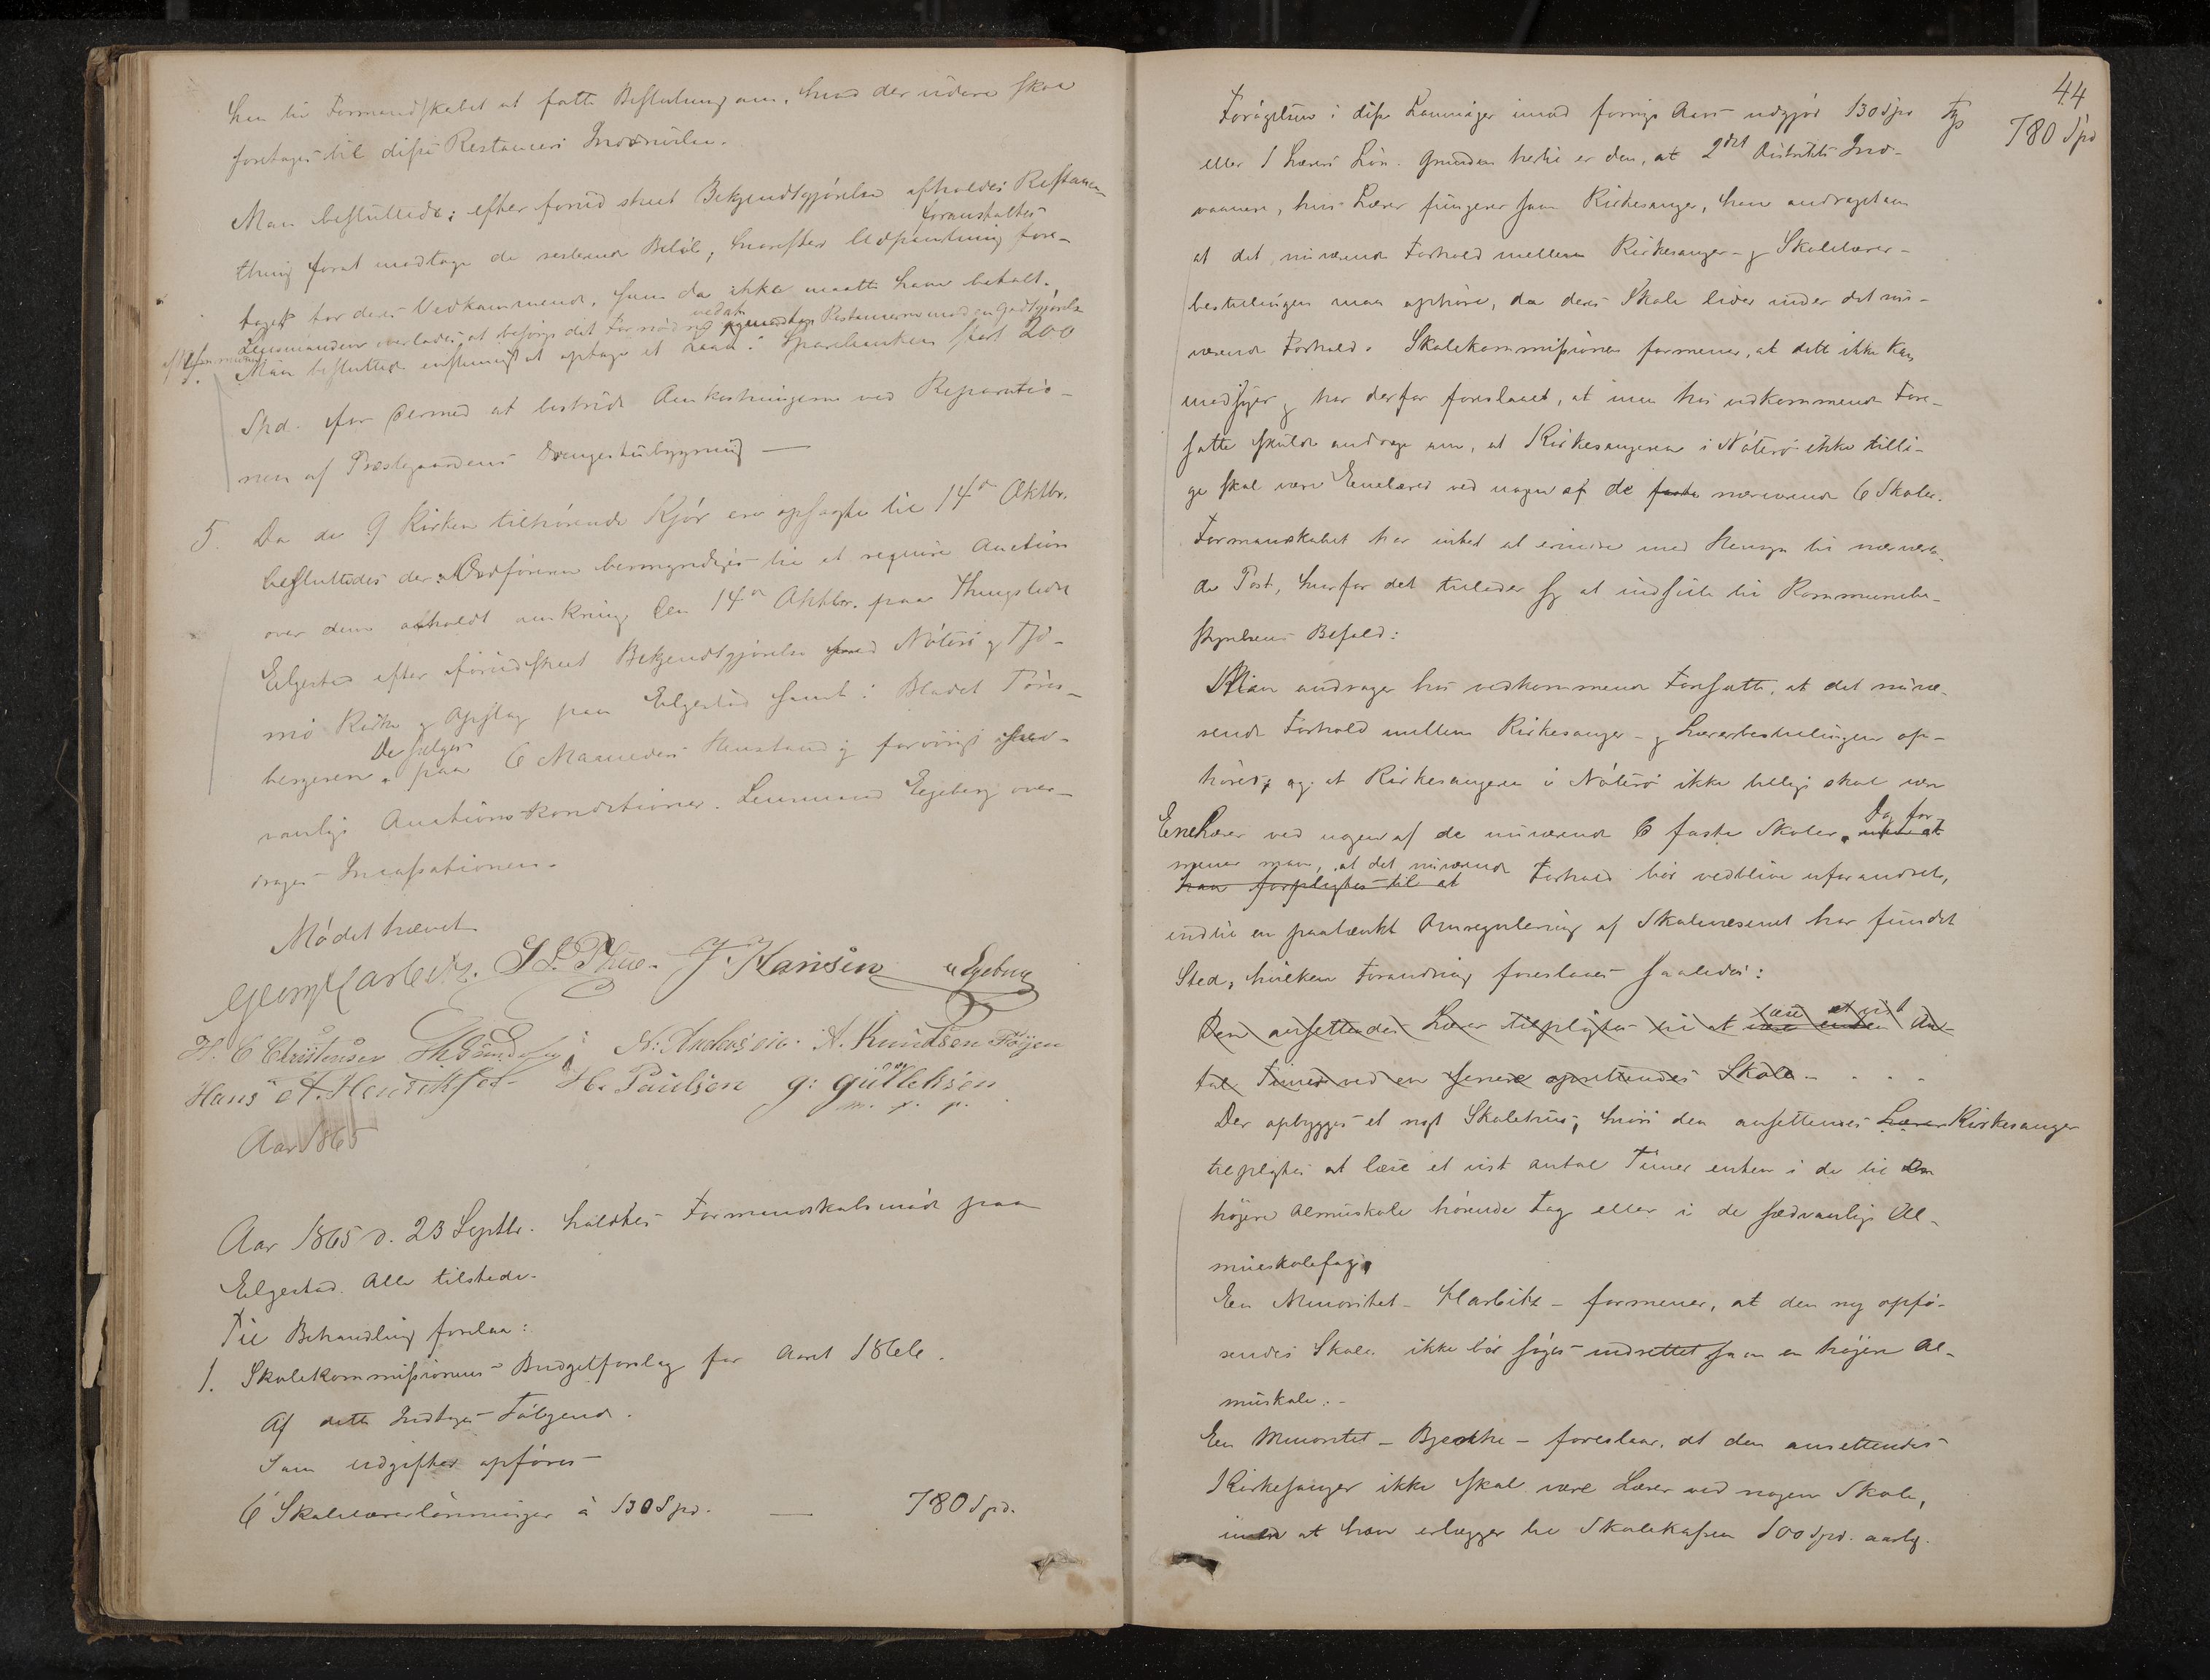 hen til Formandskabet at fatte Beslutning om, hvad der videre skal
foretages til disse Restancers Inddrivelse.
Man besluttede: efter forud skeet Bekjendtgjørelse afholdes Restance-
foranstaltes
thing forat modtage de resterende Beløb, hvorefter Udpantning fore-
taget for deres Vedkommende, som da ikke maatte have betalt.
ved at
Lensmanden overlades, at besørge det Fornødne Restancerne mod en Godtgjørelse
4. Man besluttede enstemmigt at optage et Laan i Sparebanken stort 200
Spd. for dermed at bestride Omkostningerne ved Reparatio-
nen af Præstegaardens Drengestubygning —
5. Da de 9 Kirken tilhørende Kjør ere opsagte til 14de Oktbr.
besluttedes der at Ordføreren bemyndiges til at requirere Auction
over dem afholdt omkring den 14de Oktbr. paa Thingstedet
Elgestad efter forudskeet Bekjendtgjørelse ved Nøterø og Tjø-
mø Kirke og Opslag paa Elgestad samt i Bladet Tøns-
De sælges
bergeren. paa 6 Maaneders Henstand og forøvrigt sæd-
vanlige Auctions-Konditioner. Lensmand Egeberg over-
drages Incassationen.
Mødet hævet
Georg Harbitz. J. Hansen Egeberg
H. C Christensen N: Andersen. A. Knudsen Føyen
Hans A. Henriksen H. Paulsen g: gulleksen
m. p. p.
Aar 1865
Aar 1865 d. 23 Septbr. holdtes Formandskabsmøde paa
Elgestad. Alle tilstede.
Til Behandling forelaa:
1. Skolekommissionens Budgetforslag for Aaret 1866.
Af dette Indtages Følgende.
Som udgifter opføres
6 Skolelærerlønninger à 130 Spd. — 780 Spd.
44
Forøgelsen i disse Lønninger imod forrige Aars udgjør 130 Spd 780 Spd
eller 1 Lærers Løn. Grunden hertil er den, at 2det Distrikts Ind-
vaanere, hvis Lærer fungerer som Kirkesanger, have andraget om
at det nuværende Forhold mellem Kirkesanger- og Skolelærer-
bestillingen maa ophøre, da deres Skole lider under det nu-
værende Forhold. Skolekommissionen formener, at dette ikke kan
undsiges og har derfor foreslaaet, at man hos vedkommende Fore-
satte skulde andrage om, at Kirkesangeren i Nøterø ikke tilli-
ge skal være Enelærer ved nogen af de faste nærværende 6 Skoler.
Formandskabet har intet at erindre med Hensyn til nærværen-
de Post, hvorfor det tillader sig at indstille til Kommunebe-
styrelsens Befald:
Man andrager hos vedkommende Foresatte, at det nuvæ-
rende Forhold mellem Kirkesanger- og Lærerbestillingen op-
hører, og at Kirkesangeren i Nøterø ikke tillige skal være
Enelærer ved nogen af de nuværende 6 faste Skoler. men at
Dog for-
mener man, at det nuværende
han forpligtes til at Forhold bør vedblive uforandret,
indtil en paatænkt Omregulering af Skolevæsenet har fundet
Sted, hvilken Forandring foreslaaes saaledes:
læse et vist
Den ansættendes Lærer tilpligtes til at være enten An-
tal Timer ved en senere oprettendes Skole - . . -
Der opbygges et nyt Skolehus, hvori den ansættendes Lærer Kirkesanger
tilpligtes at læse et vist Antal Timer enten i de til Den
højere Almueskole hørende Fag eller i de sædvanlige Al-
mueskolefag.
Een Minoritet - Harbitz - formener, at den ny opfø-
rendes Skole ikke bør søges indrettet som en højere Al-
mueskole. -
Een Minoritet - Bjerke - foreslaar, at den ansættendes
Kirkesanger ikke skal være Lærer ved nogen Skole,
men at han erlægger til Skolekassen 100 Spd. aarlig.